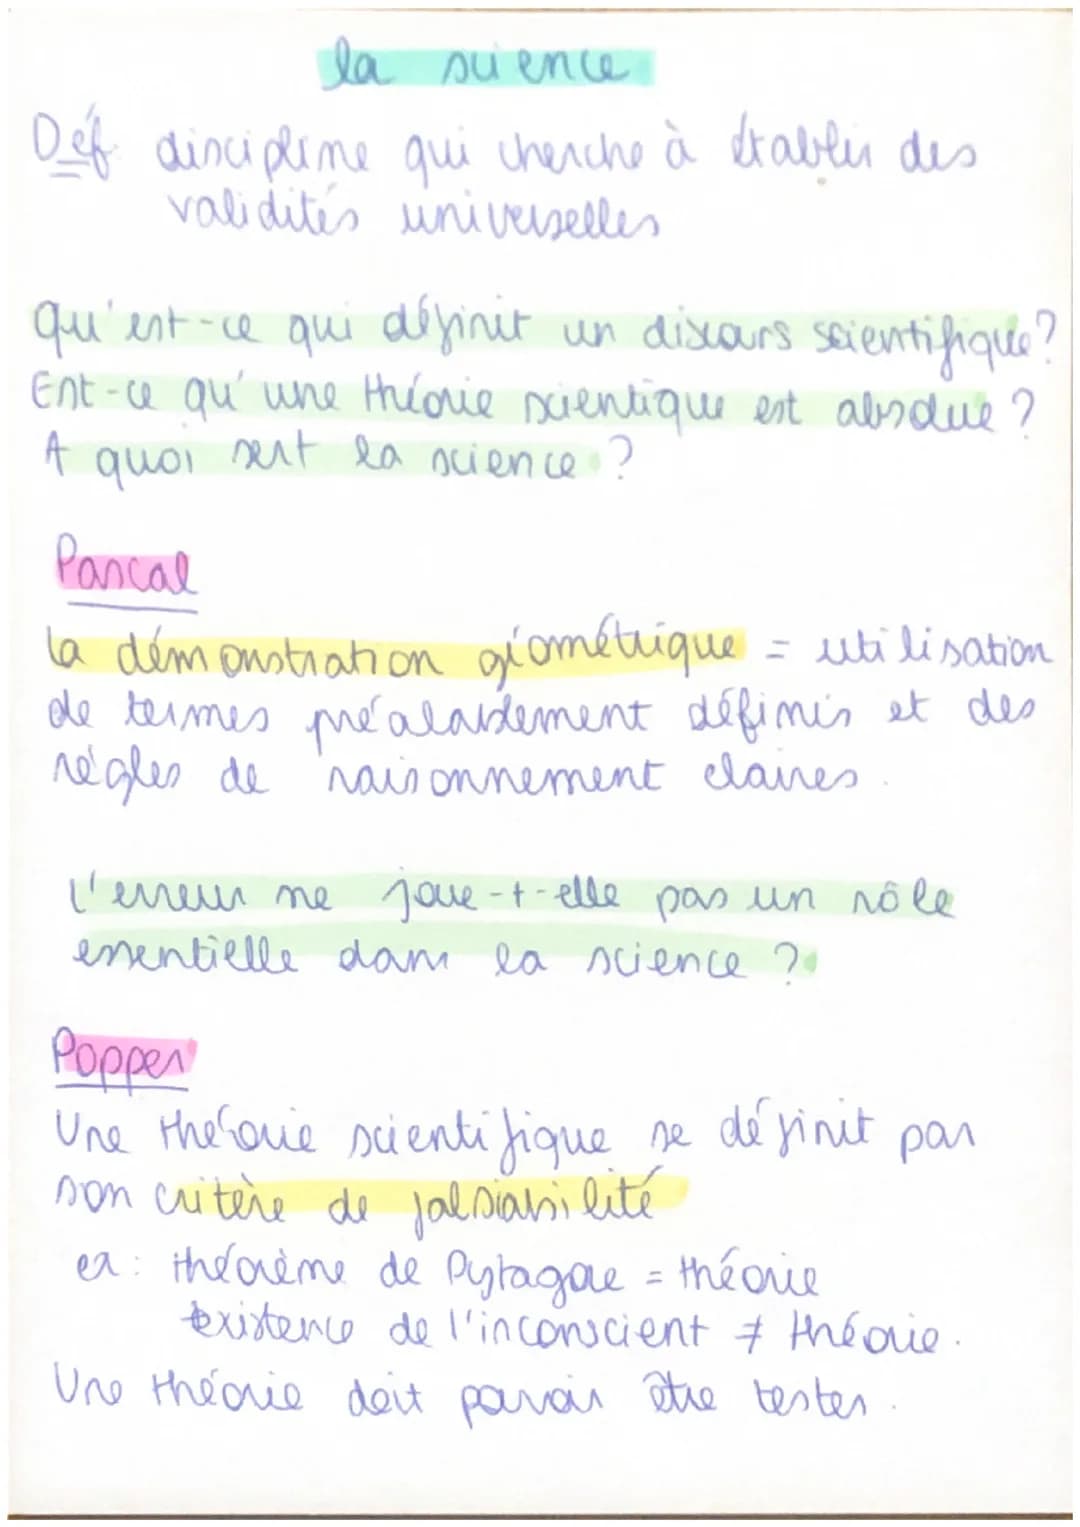 la science
Déf: discipline qui cherche à établir des
validités universelles
qu'est-ce qui définit un discours scientifique?
Est-ce qu'une théorie scientique est absolue ?
A quoi sert la science ?
Pascal
la démonstration géométrique = utilisation
de termes préalablement définis et des
règles de raisonnement claires.
l'erreur ne joue-t-elle pas un rôle
essentielle dans la science ?
Popper
Une théorie scientifique se définit par
son critère de falsiabilité
ex: théorème de Pytagore = théorie
existence de l'inconscient ≠ théorie.
Une théorie doit pouvoir être tester.